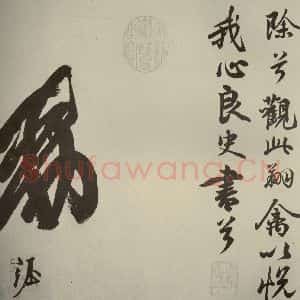 除兮觀此翔禽以悅
我心良史書兮
Shufawang.cn